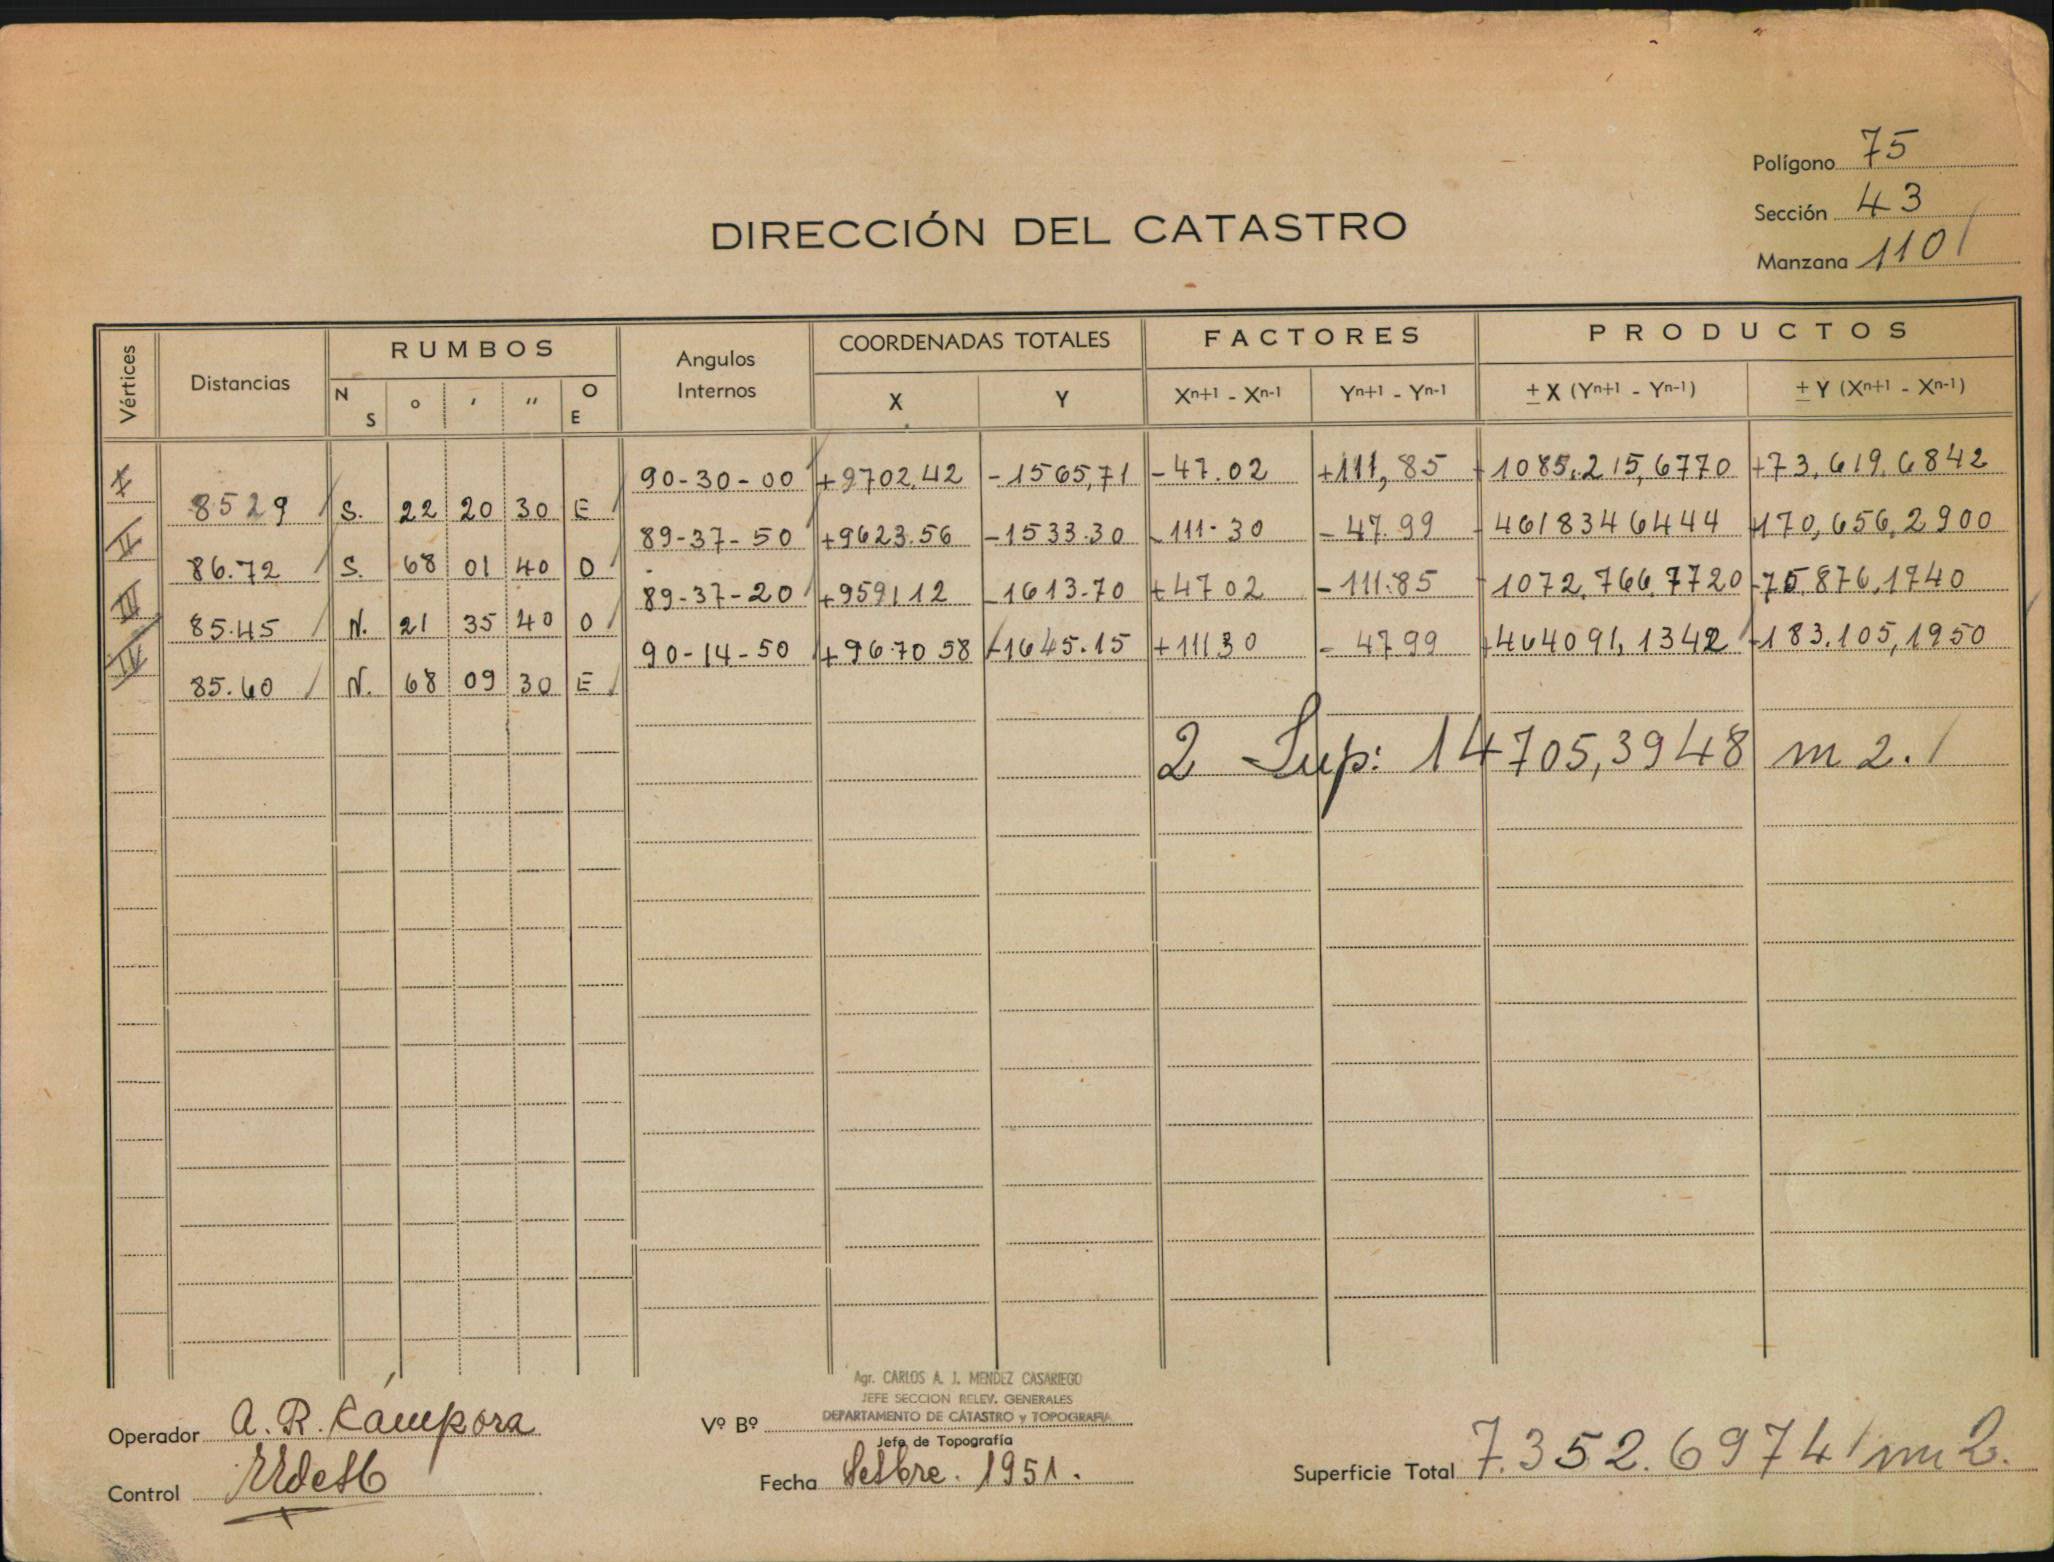 Polígono 75
Sección 43
Manzana 110
DIRECCIÓN DEL CATASTRO
Vértices Distancias RUMBOS Angulos Internos COORDENADAS TOTALES FACTORES PRODUCTOS
N S ° ′ ″ O E X Y Xⁿ⁺¹ - Xⁿ⁻¹ Yⁿ⁺¹ - Yⁿ⁻¹ ± X (Yⁿ⁺¹ - Yⁿ⁻¹) ± Y (Xⁿ⁺¹ - Xⁿ⁻¹)
I 90-30-00 +9702,42 -1565,71 -47.02 +111,85 +1085.215,6770 +73,619,6842
8529 S. 22 20 30 E
II 89-37-50 +9623.56 -1533.30 -111.30 -47.99 -4618346444 +170,656,2900
86.72 S. 68 01 40 O
III 89-37-20 +9591 12 -1613.70 +47 02 -111.85 -1072,766,7720 -75,876,1740
85.45 N. 21 35 40 O
IV 90-14-50 +9670 58 -1645.15 +11130 - 4799 +464091,1342 -183.105,1950
85.60 N. 68 09 30 E
2 Sup: 14705,3948 m2.
Operador A. R. Cámpora
Control
Vº Bº
Agr. CARLOS A. J. MENDEZ CASARIEGO
JEFE SECCION RELEV. GENERALES
DEPARTAMENTO DE CATASTRO y TOPOGRAFIA
Jefe de Topografía
Fecha Setbre. 1951.
Superficie Total 7.352.6974 m2.